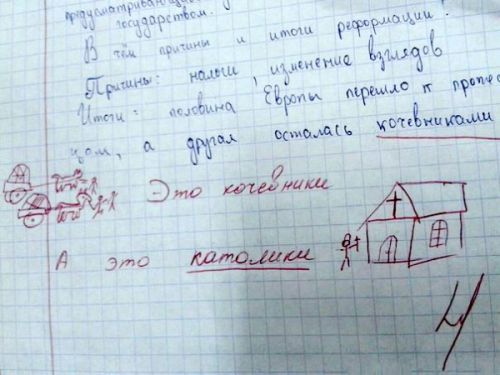 предусматривающее
государством.
В чём причины и итоги реформации?
Причины: налоги, изменение взглядов
Итоги: половина Европы перешло к
цам, а другая осталась кочевниками
Это кочевники
А это католики
4